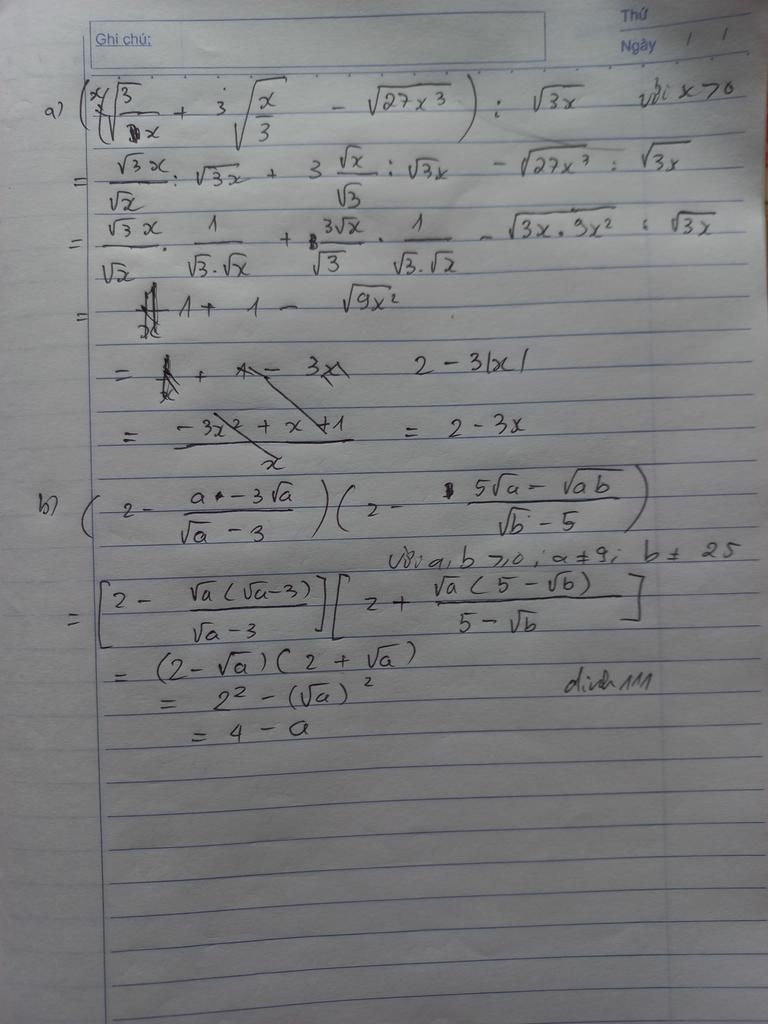 Thứ
Ghi chú:
Ngày / /
a) (x√(3/x) + 3√(x/3) - √(27x³)) : √(3x) với x > 0
= √3 x/√x : √3x + 3 √x/√3 : √3x - √(27x³) : √(3x)
= √3 x/√x . 1/(√3.√x) + 3√x/√3 . 1/(√3.√x) - √(3x.9x²) : √(3x)
= 1 + 1 - √(9x²)
= + 1 - 3x 2 - 3|x|
= (-3x² + x + 1)/x = 2 - 3x
b) (2 - (a - 3√a)/(√a - 3)) (2 - (5√a - √(ab))/(√b - 5))
với a, b ≥ 0 ; a ≠ 9 ; b ≠ 25
= [2 - √a(√a-3)/(√a-3)] [2 + √a(5 - √b)/(5 - √b)]
= (2-√a)(2 + √a)
= 2² - (√a)²
dinh111
= 4 - a